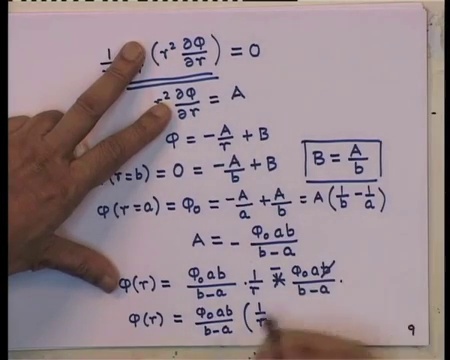 1 (r² ∂φ/∂r) = 0
r² ∂φ/∂r = A
φ = -A/r + B
φ(r=b) = 0 = -A/b + B
B = A/b
φ(r=a) = φ₀ = -A/a + A/b = A(1/b - 1/a)
A = - φ₀ab/b-a
φ(r) = φ₀ab/b-a · 1/r - φ₀ab/b-a .
φ(r) = φ₀ab/b-a (1/r
9